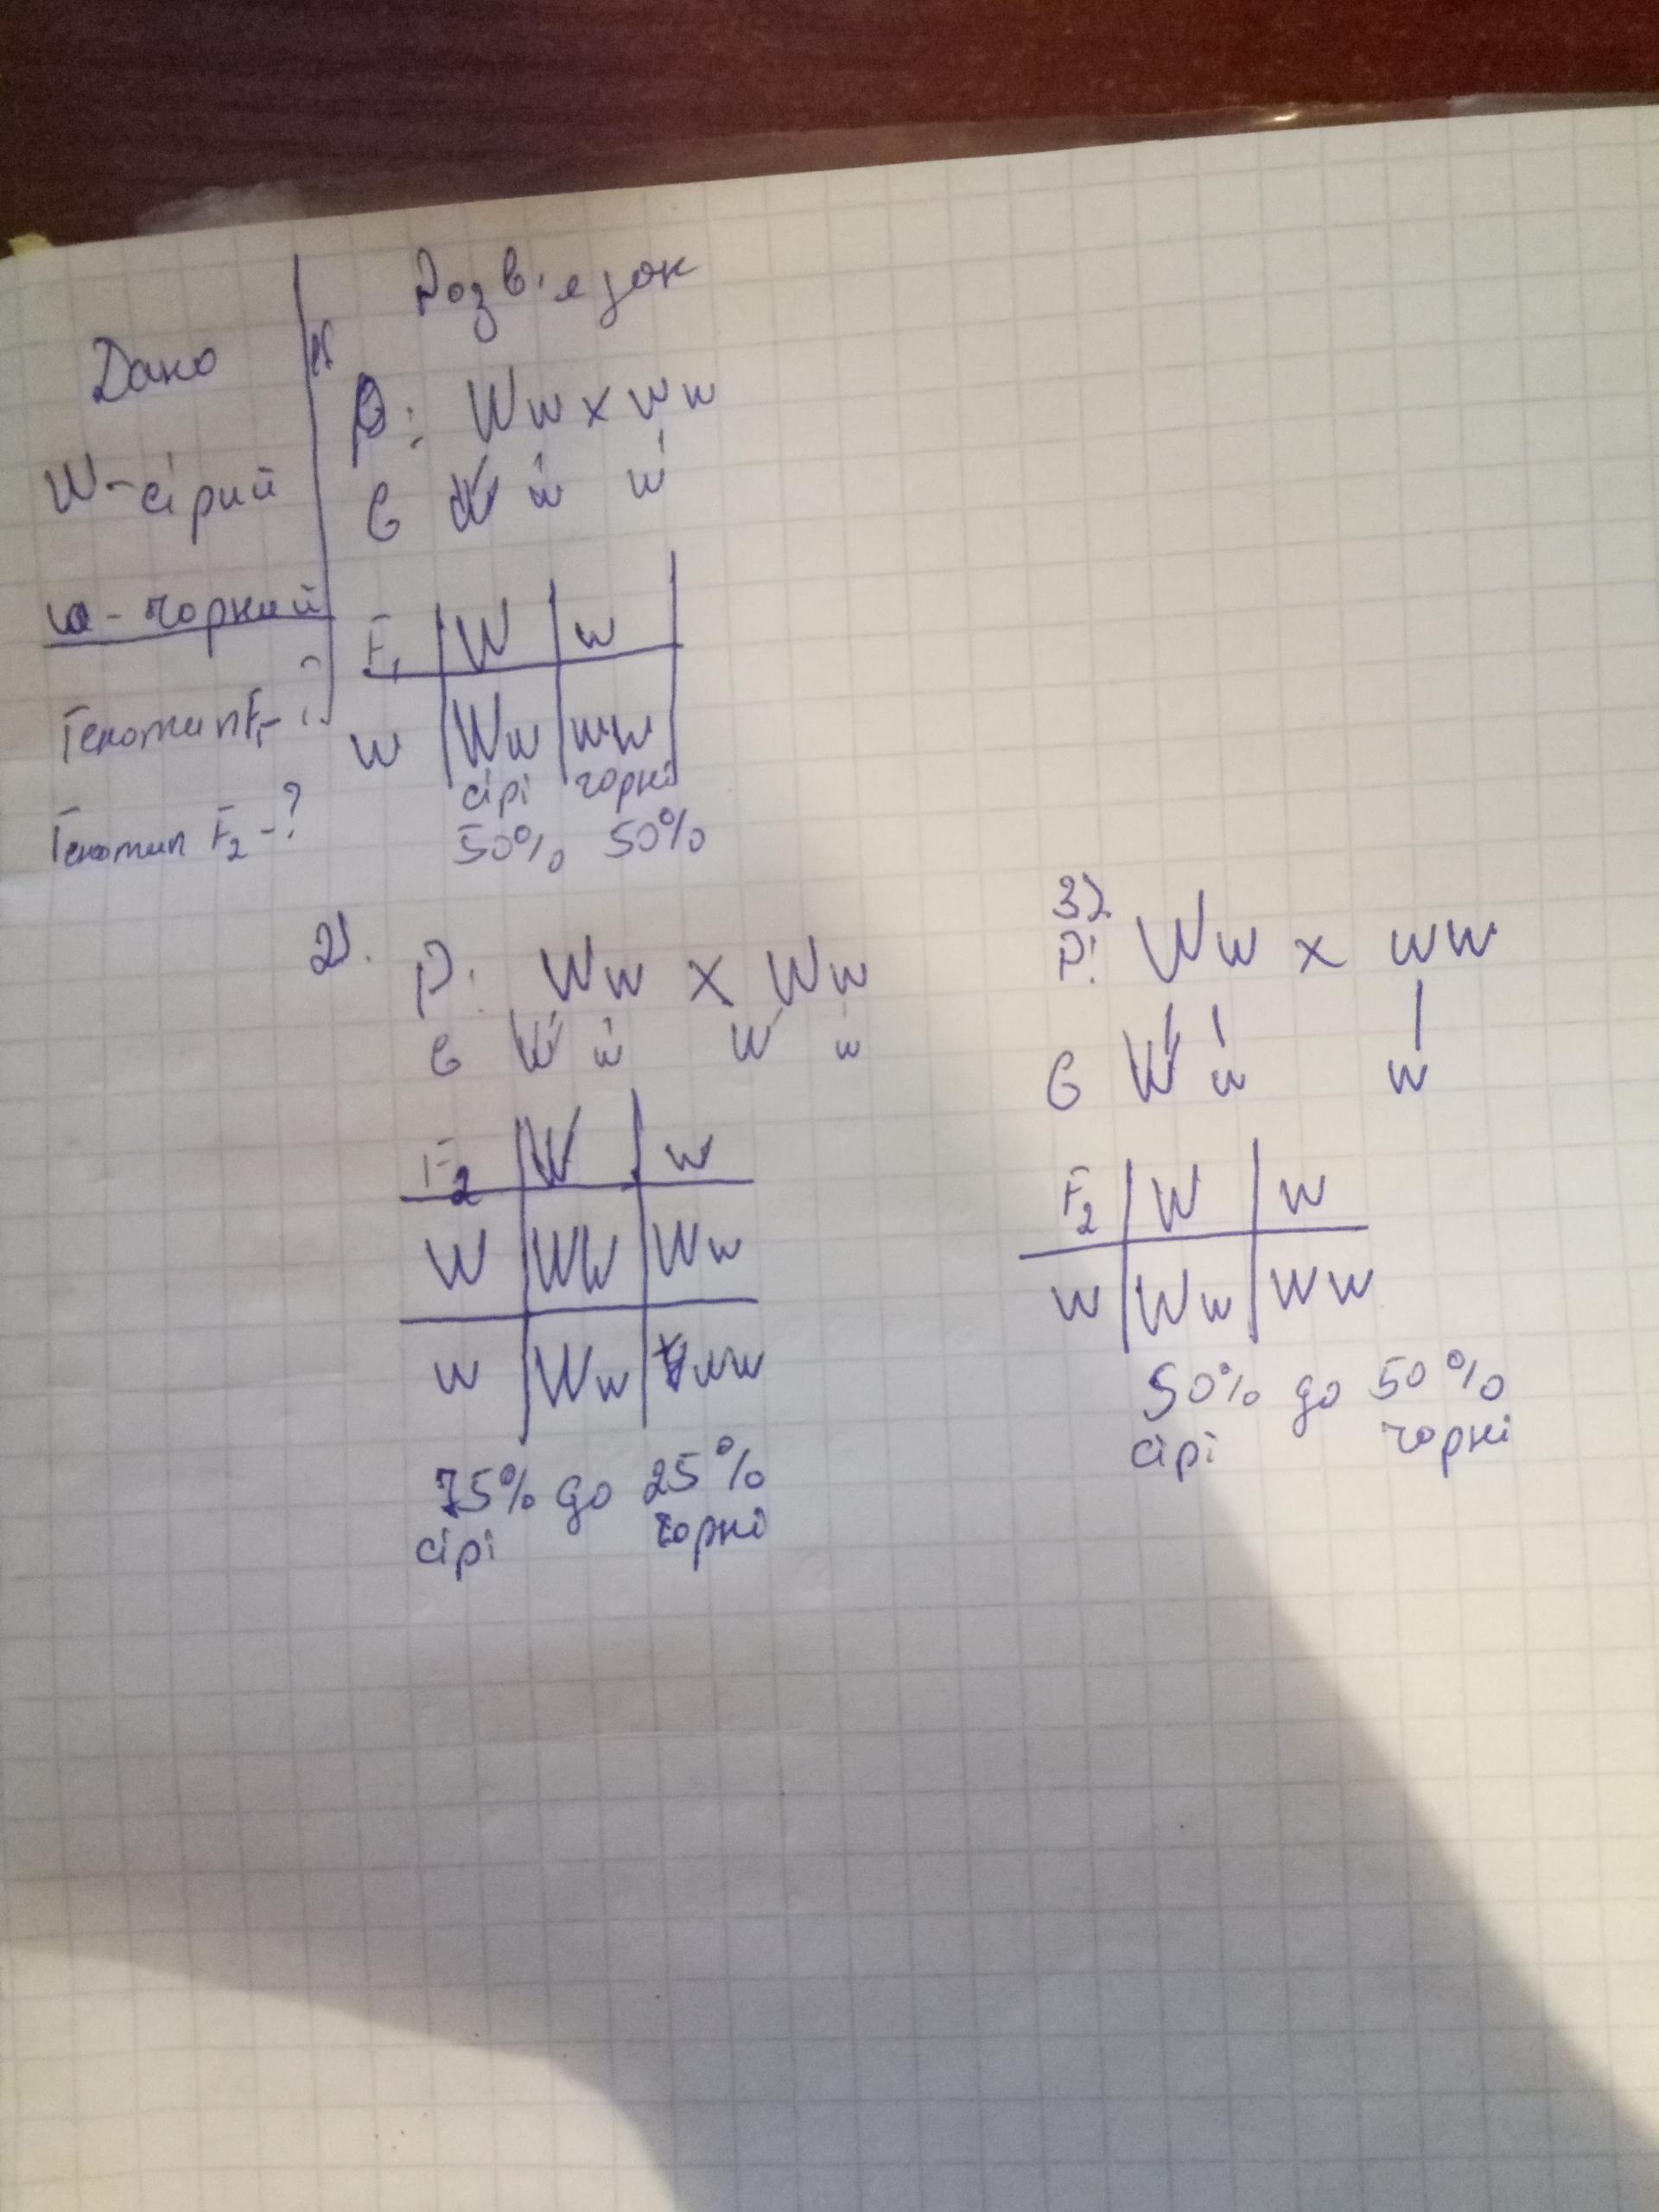 Розв'язок
Дано
1)
P: Ww x ww
W - сірий
G W w w
w - чорний
F1 W w
Генотип F1 - ?
w Ww ww
сірі чорні
Генотип F2 - ?
50% 50%
2).
P: Ww x Ww
G W w W w
F2 W w
W WW Ww
w Ww ww
75% до 25%
сірі чорні
3).
P: Ww x ww
G W w w
F2 W w
w Ww ww
50% до 50%
сірі чорні